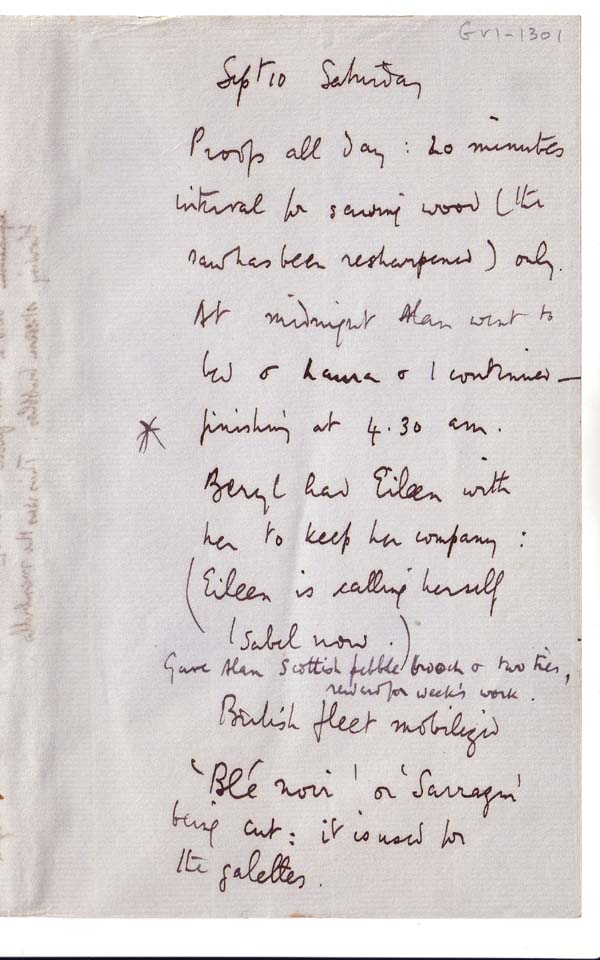 GV1-1301
Sept 10 Saturday
Proofs all day : 20 minutes
interval for sawing wood (the
saw has been resharpened) only.
At midnight Alan went to
bed & Laura & I continued —
* finishing at 4.30 am.
Beryl had Eileen with
her to keep her company :
(Eileen is calling herself
Isabel now.)
Gave Alan Scottish pebble brooch & two ties,
reward for week's work.
British fleet mobilized
'Blé noir' or 'Sarragin'
being cut : it is used for
the galettes.